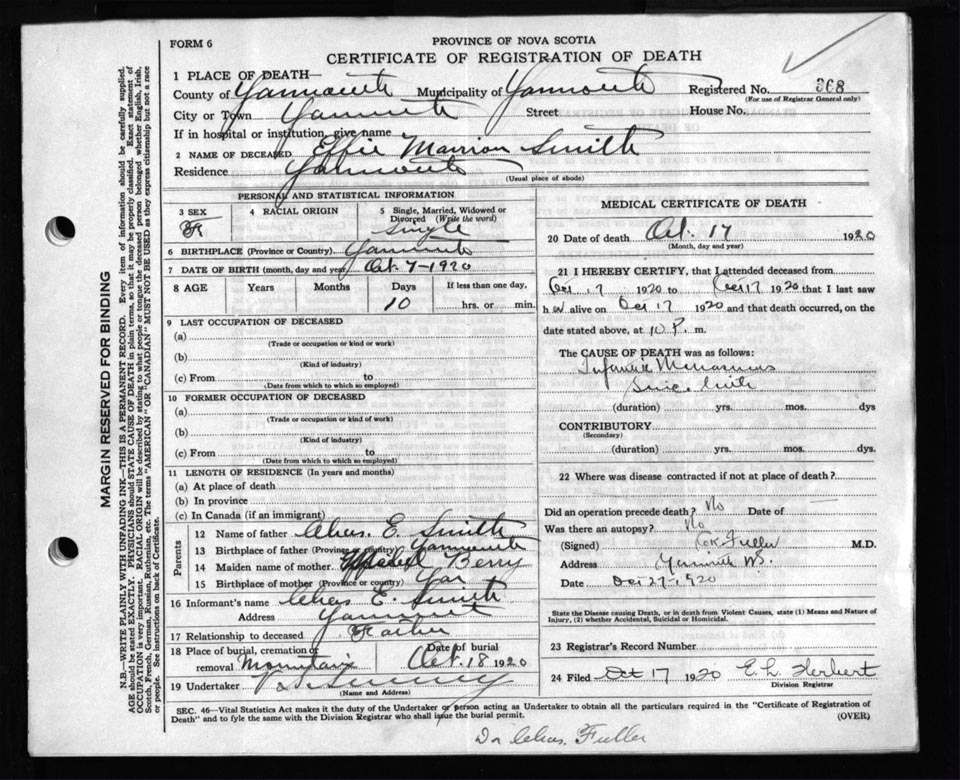 FORM 6
PROVINCE OF NOVA SCOTIA
CERTIFICATE OF REGISTRATION OF DEATH
1 PLACE OF DEATH—
County of Yarmouth Municipality of Yarmouth Registered No. 368
(For use of Registrar General only)
City or Town Yarmouth Street House No.
If in hospital or institution, give name
2 NAME OF DECEASED Effie Marrion Smith
Residence Yarmouth
(Usual place of abode)
PERSONAL AND STATISTICAL INFORMATION
3 SEX 4 RACIAL ORIGIN 5 Single, Married, Widowed or Divorced (Write the word)
F Single
6 BIRTHPLACE (Province or Country) Yarmouth
7 DATE OF BIRTH (month, day and year) Oct 7-1920
8 AGE Years Months Days If less than one day,
10 hrs. or min.
9 LAST OCCUPATION OF DECEASED
(a)
(Trade or occupation or kind or work)
(b)
(Kind of industry)
(c) From to
(Date from which to which so employed)
10 FORMER OCCUPATION OF DECEASED
(a)
(Trade or occupation or kind of work)
(b)
(Kind of industry)
(c) From to
(Date from which to which so employed)
11 LENGTH OF RESIDENCE (In years and months)
(a) At place of death
(b) In province
(c) In Canada (if an immigrant)
Parents
12 Name of father Chas. E. Smith
13 Birthplace of father (Province or country) Yarmouth
14 Maiden name of mother Berry
15 Birthplace of mother (Province or country) Yar
16 Informant's name Chas E. Smith
Address Yarmouth
17 Relationship to deceased Father
18 Place of burial, cremation or removal Mountain Date of burial Oct. 18 1920
19 Undertaker Sweeney
(Name and Address)
MEDICAL CERTIFICATE OF DEATH
20 Date of death Oct. 17 1920
(Month, day and year)
21 I HEREBY CERTIFY, that I attended deceased from
Oct 17 1920 to Oct 17 1920 that I last saw
h alive on Oct 17 1920 and that death occurred, on the
date stated above, at 10 P. m.
The CAUSE OF DEATH was as follows:
Infantile Marasmus
Since birth
(duration) yrs. mos. dys
CONTRIBUTORY
(Secondary)
(duration) yrs. mos. dys.
22 Where was disease contracted if not at place of death?
Did an operation precede death? No Date of —
Was there an autopsy? No
(Signed) Fuller M.D.
Address Yarmouth NS.
Date Oct 27-1920
State the Disease causing Death, or in death from Violent Causes, state (1) Means and Nature of
Injury, (2) whether Accidental, Suicidal or Homicidal.
23 Registrar's Record Number
24 Filed Oct 17 1920 E. L. Herbert
Division Registrar
SEC. 46—Vital Statistics Act makes it the duty of the Undertaker or person acting as Undertaker to obtain all the particulars required in the "Certificate of Registration of
Death" and to fyle the same with the Division Registrar who shall issue the burial permit. (OVER)
Dr Chas. Fuller
MARGIN RESERVED FOR BINDING
N.B.—WRITE PLAINLY WITH UNFADING INK—THIS IS A PERMANENT RECORD. Every item of information should be carefully supplied.
AGE should be stated EXACTLY. PHYSICIANS should STATE CAUSE OF DEATH in plain terms, so that it may be properly classified. Exact statement of
OCCUPATION is very important. RACIAL ORIGIN will be described by stating to what people or tongue the deceased person belonged whether English, Irish,
Scotch, French, German, Russian, Ruthenian, etc. The terms "AMERICAN" OR "CANADIAN" MUST NOT BE USED as they express citizenship but not a race
or people. See instructions on back of Certificate.